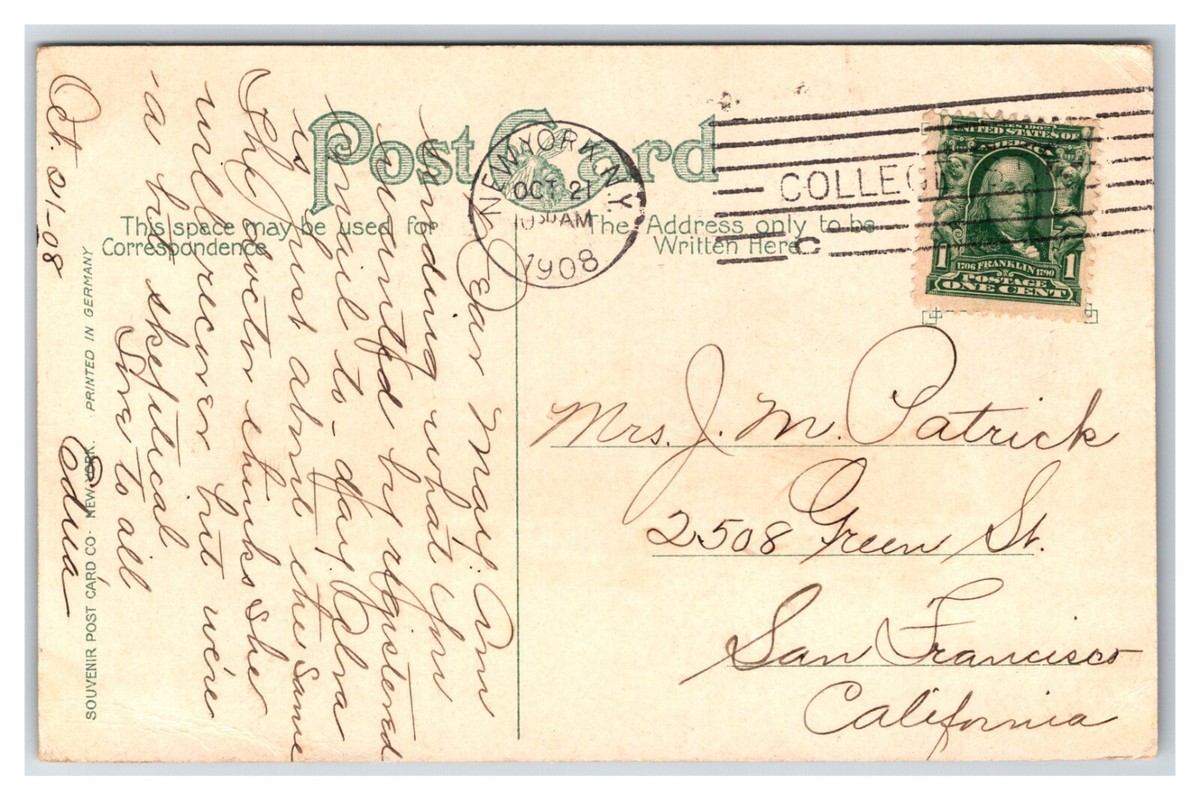 Post Card
This space may be used for
Correspondence
The Address only to be
Written Here
NEW YORK, N.Y.
OCT 21
AM
1908
COLLEGE
C
UNITED STATES OF
AMERICA
1706 FRANKLIN 1790
POSTAGE
1 ONE CENT 1
Dear May: Am
sending what you
wanted by registered
mail to-day. Alva
is just about the same
The doctor thinks she
will recover but we're
a bit skeptical
Love to all
Edna
Oct. 21-08
Mrs. J. M. Patrick
2508 Green St.
San Francisco
California
SOUVENIR POST CARD CO. NEW YORK. PRINTED IN GERMANY